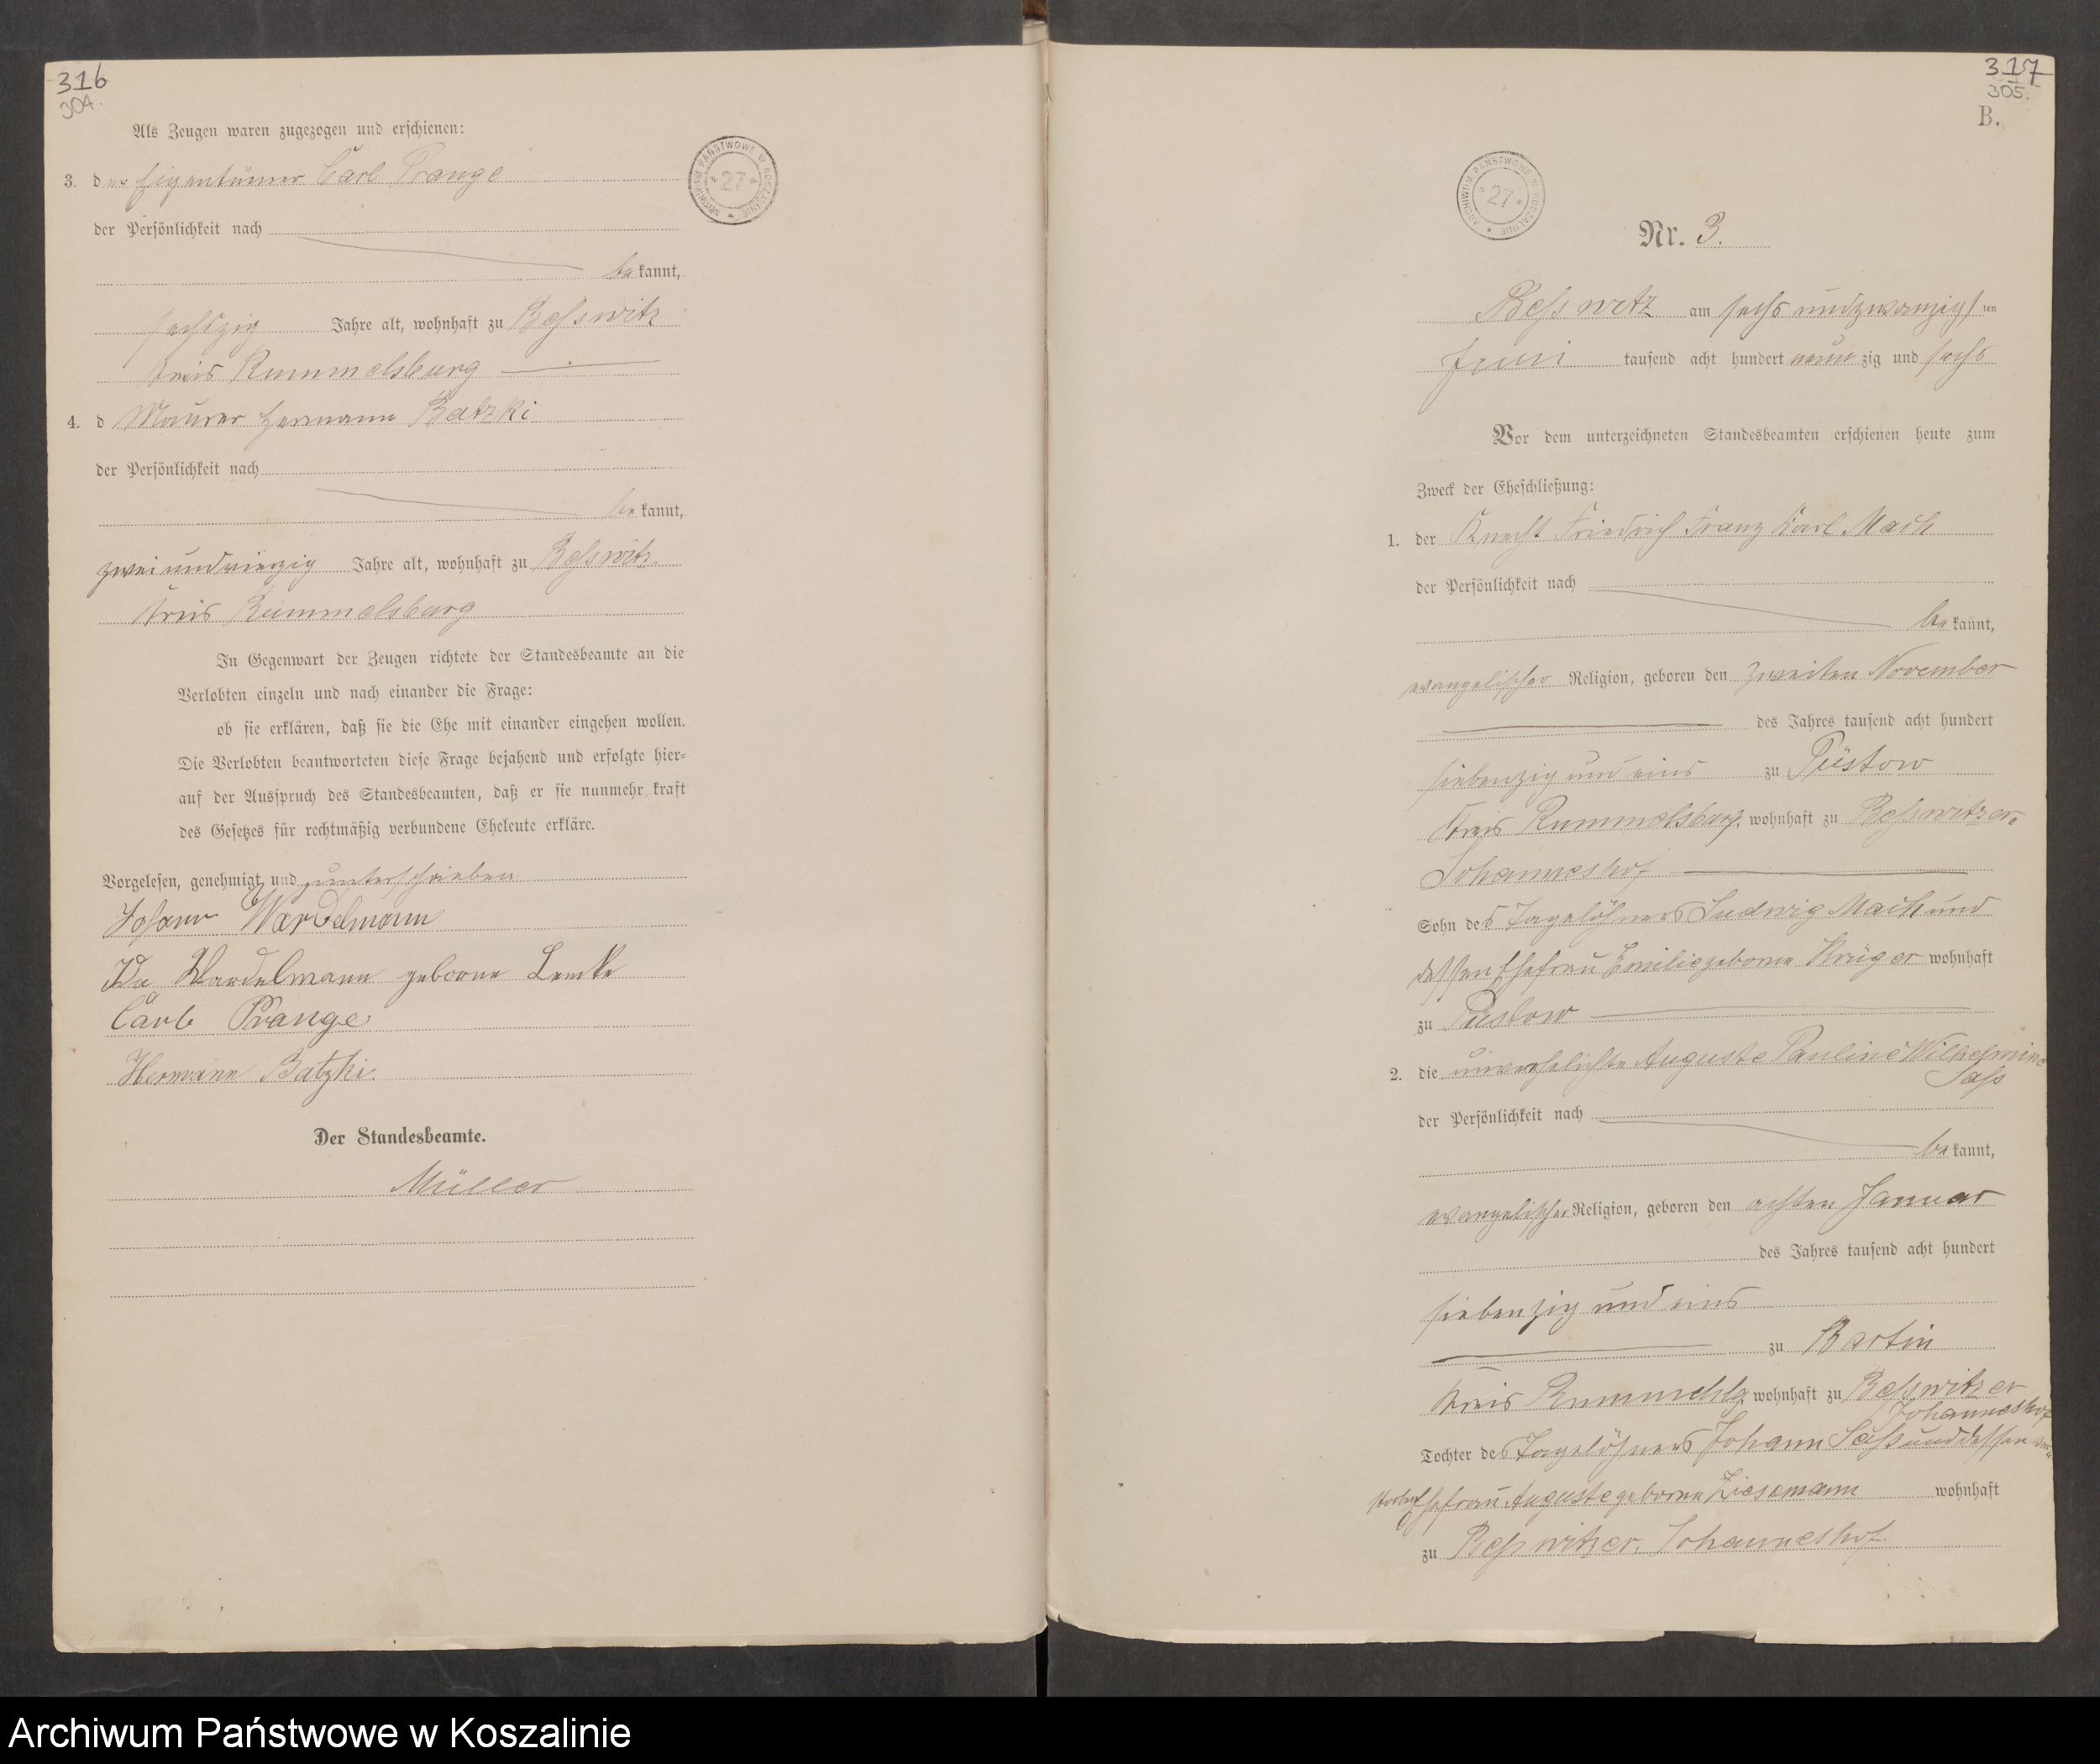 316
304.
Als Zeugen waren zugezogen und erschienen:
3. der Eigentümer Carl Prange
der Persönlichkeit nach
bekannt,
sechszig Jahre alt, wohnhaft zu Beßwitz
Kreis Rummelsburg
4. d Maurer Hermann Batzki
der Persönlichkeit nach
bekannt,
zweiundvierzig Jahre alt, wohnhaft zu Beßwitz
Kreis Rummelsburg
In Gegenwart der Zeugen richtete der Standesbeamte an die
Verlobten einzeln und nach einander die Frage:
ob sie erklären, daß sie die Ehe mit einander eingehen wollen.
Die Verlobten beantworteten diese Frage bejahend und erfolgte hier-
auf der Ausspruch des Standesbeamten, daß er sie nunmehr kraft
des Gesetzes für rechtmäßig verbundene Eheleute erkläre.
Vorgelesen, genehmigt und unterschrieben
Johann Wardelmann
Ida Wardelmann geborne Lemke
Carl Prange
Hermann Batzki.
Der Standesbeamte.
Müller
ARCHIWUM PAŃSTWOWE W KOSZALINIE
* 27 *
317
305.
B.
ARCHIWUM PAŃSTWOWE W KOSZALINIE
* 27 *
Nr. 3.
Beßwitz am sechs und zwanzigsten
Juni tausend acht hundert neunzig und sechs
Vor dem unterzeichneten Standesbeamten erschienen heute zum
Zweck der Eheschließung:
1. der Knecht Friedrich Franz Karl Mach
der Persönlichkeit nach
bekannt,
evangelischer Religion, geboren den zweiten November
des Jahres tausend acht hundert
siebenzig und eins zu Püstow
Kreis Rummelsburg, wohnhaft zu Beßwitzer-
Johanneshof
Sohn des Tagelöhners Ludwig Mach und
dessen Ehefrau Emilie geborne Krüger wohnhaft
zu Püstow
2. die unverehelichte Auguste Pauline Wilhelmine
Saß
der Persönlichkeit nach
bekannt,
evangelischer Religion, geboren den achten Januar
des Jahres tausend acht hundert
siebenzig und eins
zu Bartin
Kreis Rummelsbg, wohnhaft zu Beßwitzer
Johanneshof
Tochter des Tagelöhners Johann Saß und dessen ver-
storbn Ehefrau Auguste geborne Ziesemann wohnhaft
zu Beßwitzer. Johanneshof.
Archiwum Państwowe w Koszalinie